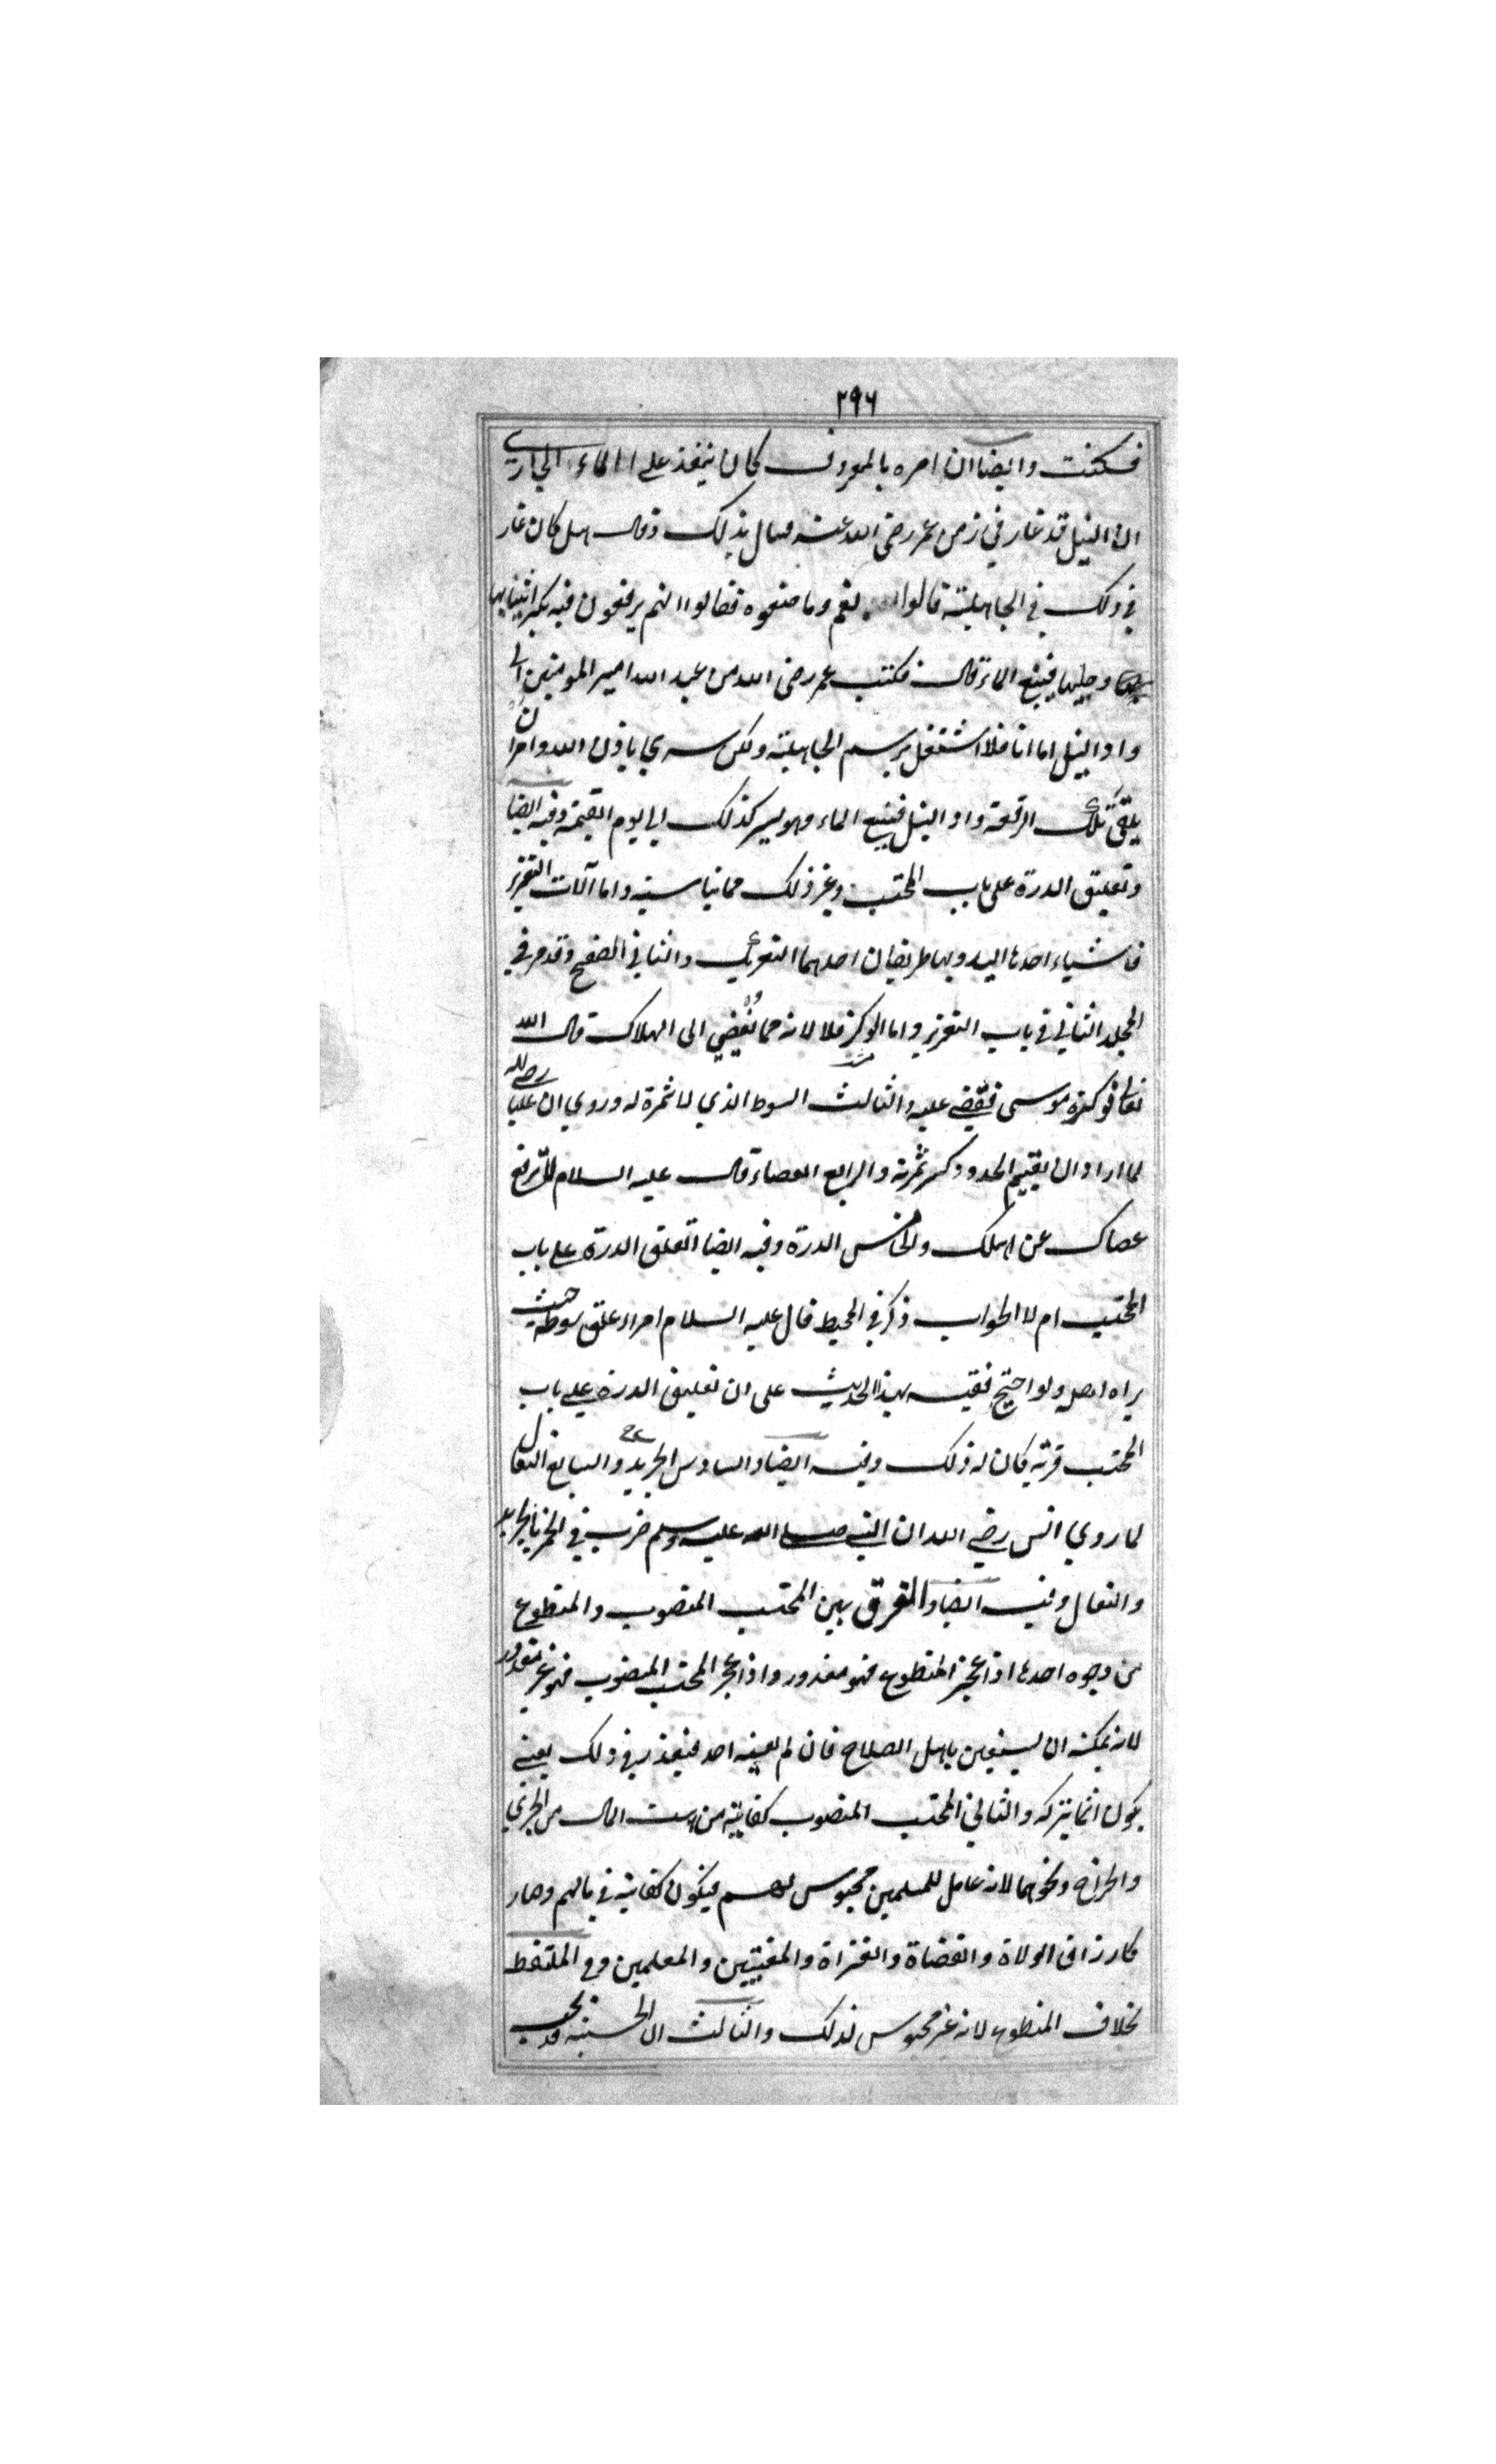 ٢٩٦
فسكنت وايضا ان امره بالمعروف كان ينفذ على الماء الجاري
ان النيل قد غار في زمن عمر رضى الله عنه فسال بذلك وقال هل كان غار
في ذلك في الجاهلية قالوا نعم وما صنعوه فقالوا انهم يرفعون فيه بكرا بثيابها
وحليها فينبع الماء قال فكتب عمر رضى الله من عبد الله امير المومنين الى
واد النيل اما انا فلا اشتغل برسم الجاهلية ولكن سر يجا باذن الله وامر ان
يلقى تلك الرقعة واد النيل فينبع الماء وهو يسر كذلك الى يوم القيمة وفيه ايضا
وتعليق الدرة على باب المحتسب وغير ذلك مما يناسبه واما آلات التعزير
فاشياء احدها اليد وبها طريقان احدهما التعريك والثاني الصفح وقد مر في
المجلد الثاني في باب التعزير واما الوكز فلا لانه مما يفضي الى الهلاك قال الله
تعالى فوكزه موسى فقضى عليه والثالث السوط الذي لا ثمرة له وروي ان عليا رضى الله
لما اراد ان يقيم الحدود كسر ثمرته والرابع العصاء قال عليه السلام لا ترفع
عصاك عن اهلك والخامس الدرة وفيه ايضا اتعلق الدرة على باب
المحتسب ام لا الجواب ذكر في المحيط قال عليه السلام امراء علق سوطه حيث
يراه اهله ولو احتج فقيه بهذا الحديث على ان تعليق الدرة على باب
المحتسب قربة كان له ذلك وفيه ايضا والسادس الجريد والسابع النعال
لما روي انس رضي الله ان النبي صلى الله عليه وسلم ضرب في الخمر بالجريد
والنعال وفيه ايضا والفرق بين المحتسب المنصوب والمتطوع
من وجوه احدها اذا عجز المتطوع فهو معذور واذا عجز المحتسب المنصوب فهو غير معذور
لانه يمكنه ان يستعين باهل الصلاح فان لم يعينه احد فيعذر في ذلك يعني
يكون اثما بتركه والثاني المحتسب المنصوب كفايته من بيت المال من الجزي
والخراج ونحوهما لانه عامل للمسلمين محبوس لهم فيكون كفايته في مالهم وصار
كارزاق الولاة والقضاة والغزاة والمفتيين والمعلمين وفي الملتقط
بخلاف المتطوع لانه غير محبوس لذلك والثالث ان الحسبة قد تجب